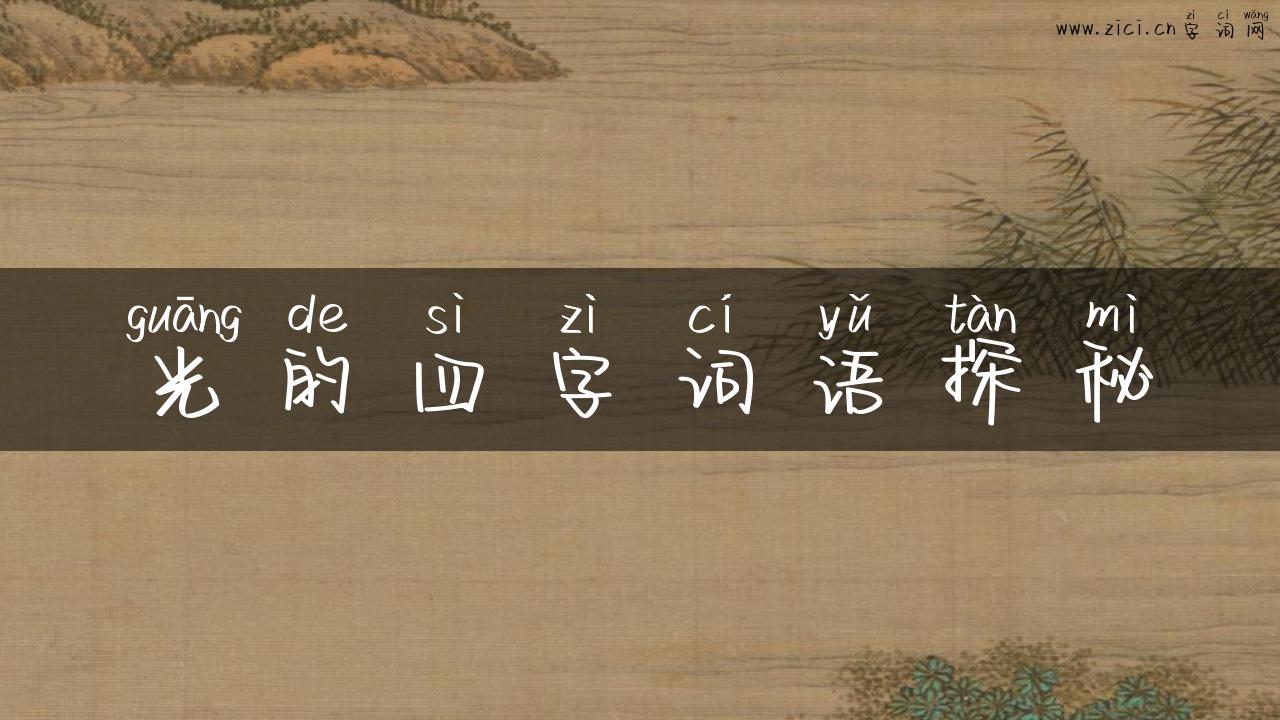 zì cí wǎng
www.zici.cn字词网
guāng de sì zì cí yǔ tàn mì
光的四字词语探秘